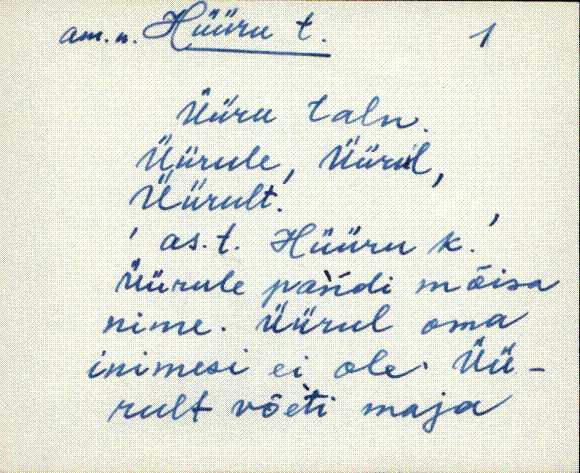 am. n. Hüüru t. 1
Üüru taln.
Üürule, Üürül,
Üürult.
' as. t. Hüüru k.'
Üürule pan̄di mõisa
nime. Üürul oma
inimesi ei ole. Üü-
rult võeti maja